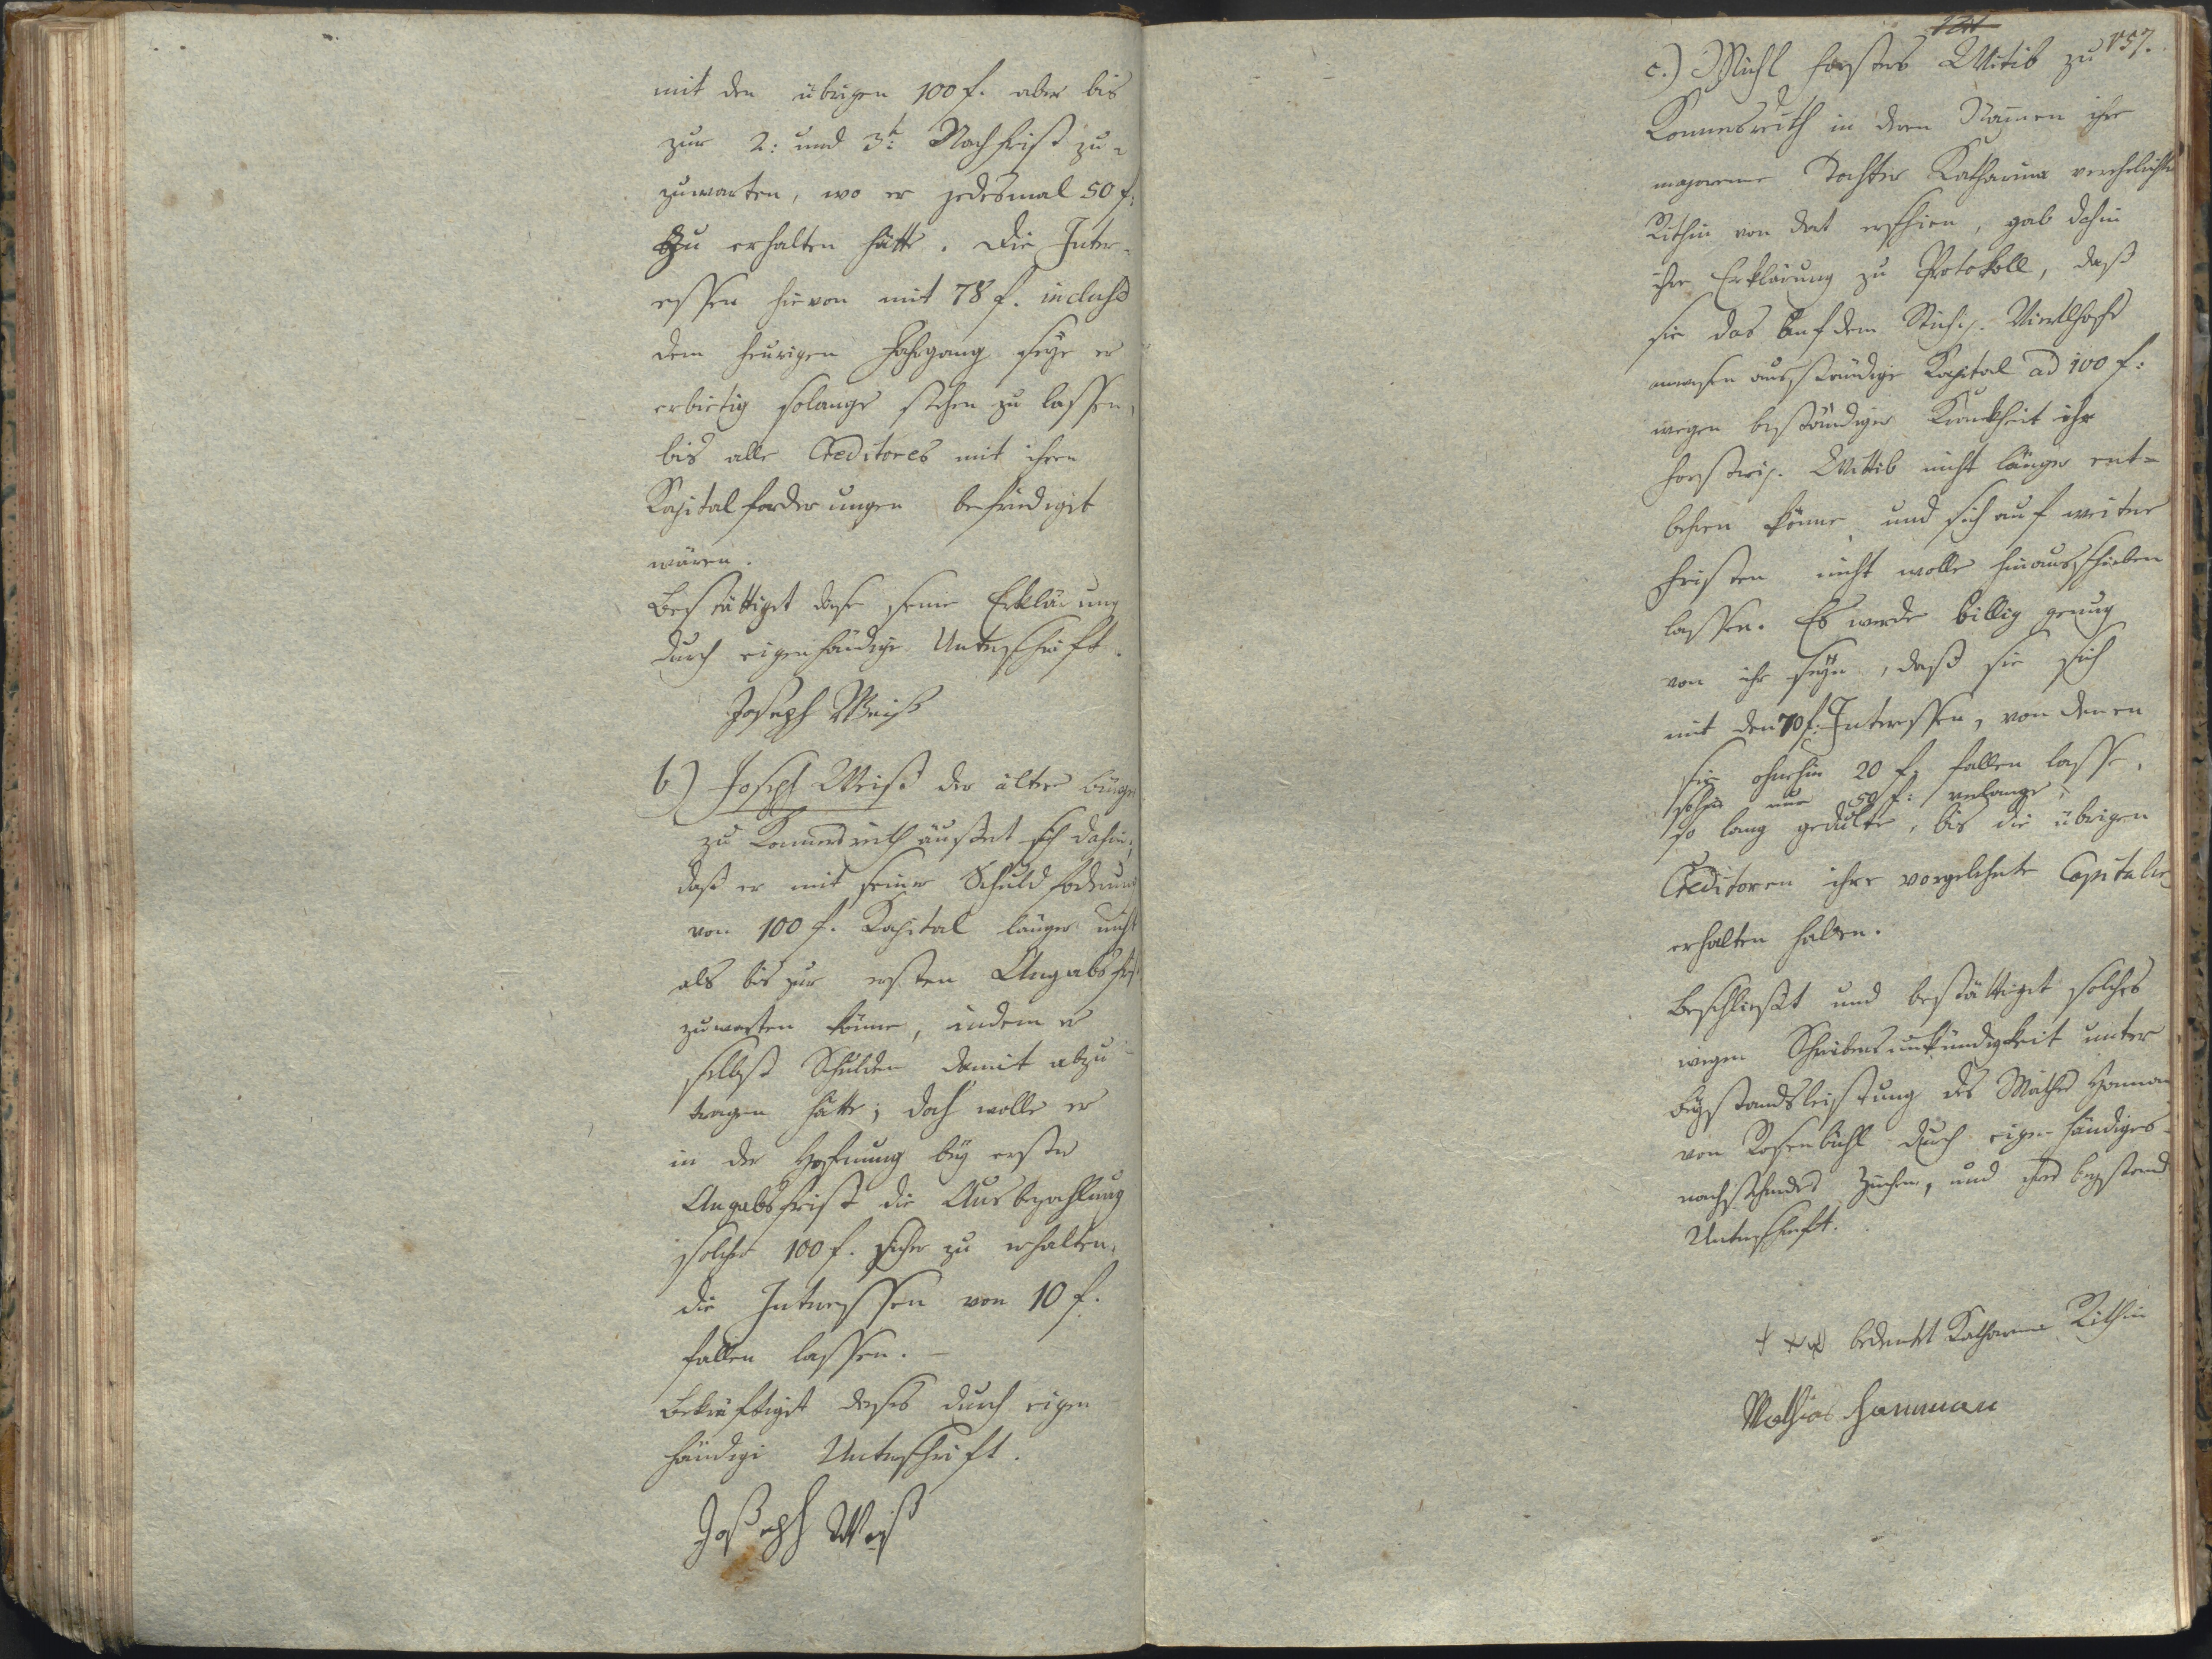 mit den übrigen 100 f. aber bis
zur 2: und 3t: Nachfrist zu=
zuwarten, wo er jedesmal 50 f:
zu erhalten hätte. Die Inter=
essen hievon mit 78 f. inclus
dem heurigen Jahrgang seye er
erbietig solange stehen zu lassen,
bis alle Creditores mit ihren
Kapitalforderungen befriediget
wären.
Bestättiget dese seine Erklärung
durch eigenhändige Unterschrift.
Joseph Weiß
b) Joseph Weiß der ältere burger
zu Konnersreuth äußert sich dahin,
daß er mit seiner Schuldforderung
von 100 f. Kapital länger nicht
als bis zur ersten Angabsfrist
zuwarten könne, indem er
selbst Schulden damit abzu=
tragen hätte; doch wolle er
in der Hofnung bey erster
Angabsfrist die Ausbezahlung
solcher 100 f. sicher zu erhalten,
die Interessen von 10 f.
fallen lassen. —
Bekräftiget dieses durch eigen
händige Unterschrift.
Joseph Weiß
157.
c.) Michl Forsters Wittib zu
Konnersreuth in deren Namen ihre
majorenne Tochter Katharina verehelichte
Rithin von dort erschien, gab dahin
ihre Erklärung zu Protokoll, daß
sie das auf dem Viertlhofs
anwesen ausständige Kapital ad 100 f:
wegen beständiger Krankheit ihr
Forsterisch. Wittib nicht länger ent=
behren könne, und sich auf weitere
Fristen nicht wolle hinausschieben
lassen. Es werde billig genug
von ihr seyn, daß sie sich
mit den 70 f: Interessen, von denen
sie ohnehin 20 f. fallen lasse,
sohin nur 50 f: verlange,
so lang gedulte, bis die übrigen
Creditoren ihre vorgelehnte Capitalien
erhalten haben.
Beschließt und bestättiget solches
wegen Schreibensunkündigkeit unter
Beystandsleistung des Mathes Hannan
von Rosenbühl durch eigenhändiges
nachstehendes Zeichen, und ihres beystand
Unterschrift.
+ + + bedeutet Katharina Rithin
Mathias Hannman